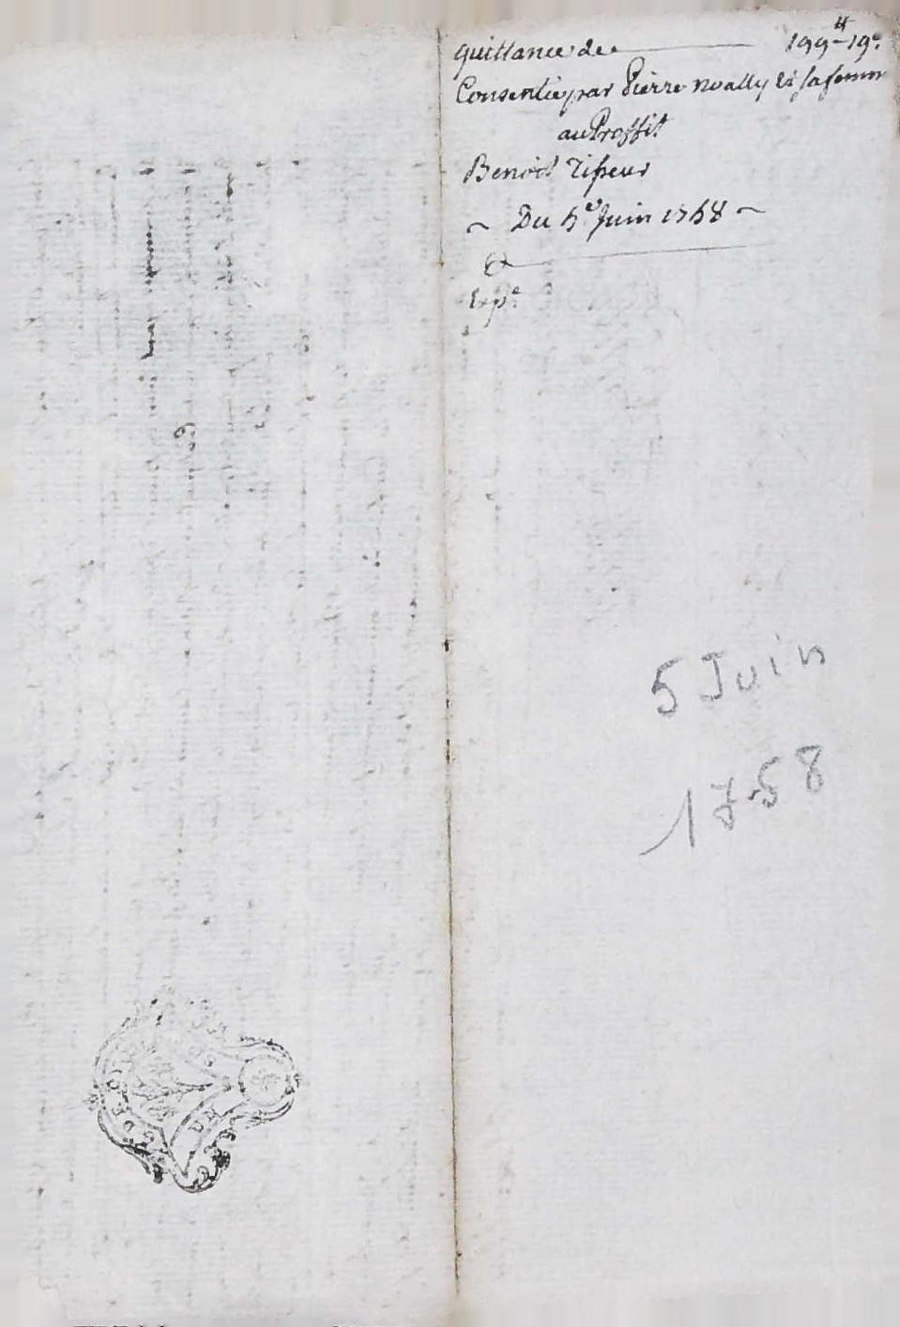 quittance de 199ᵗᵗ 19ˢ
Consentie par Pierre noally & sa femme
au Proffit
Benoit Tisseur
~ Du 5e Juin 1758 ~
&
Expe
5 Juin
1758